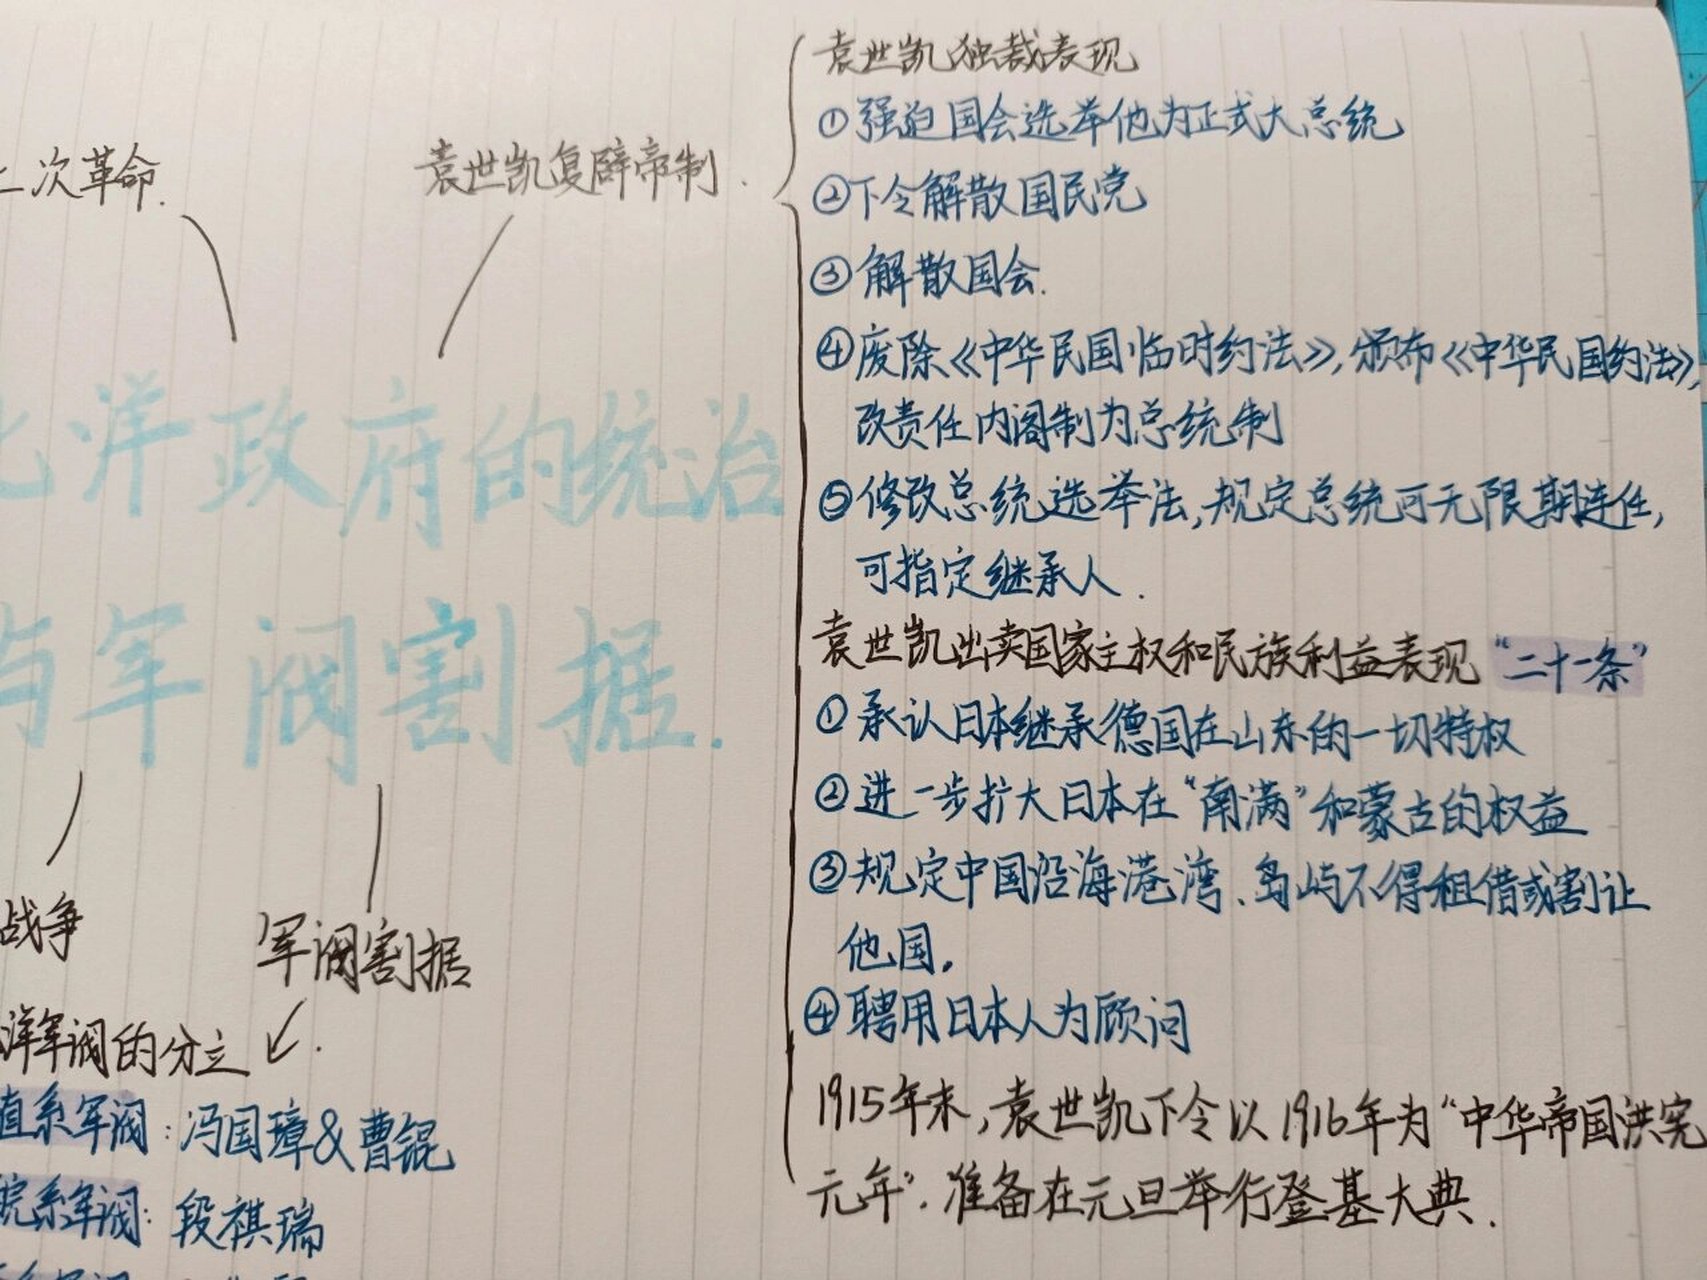 二次革命.
袁世凯复辟帝制.
北洋政府的统治
与军阀割据.
战争
军阀割据
洋军阀的分立
直系军阀：冯国璋&曹锟
皖系军阀：段祺瑞
袁世凯独裁表现
①强迫国会选举他为正式大总统
②下令解散国民党
③解散国会.
④废除《中华民国临时约法》,颁布《中华民国约法》,
改责任内阁制为总统制
⑤修改总统选举法,规定总统可无限期连任,
可指定继承人.
袁世凯出卖国家主权和民族利益表现“二十一条”
①承认日本继承德国在山东的一切特权
②进一步扩大日本在“南满”和蒙古的权益
③规定中国沿海港湾、岛屿不得租借或割让
他国.
④聘用日本人为顾问
1915年末,袁世凯下令以1916年为“中华帝国洪宪
元年”.准备在元旦举行登基大典.